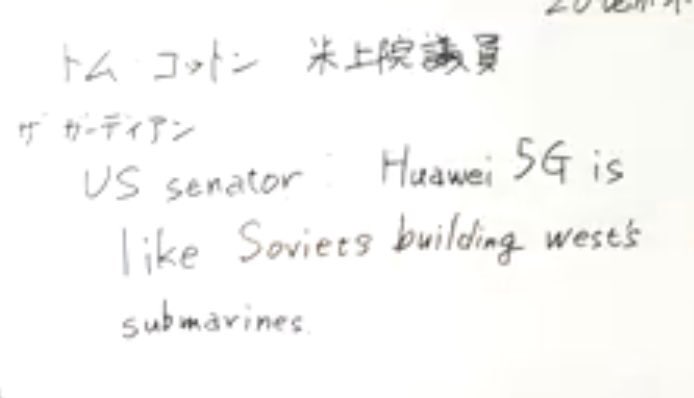 トム・コットン 米上院議員
ザ ガーディアン
US senator : Huawei 5G is
like Soviets building west's
submarines.